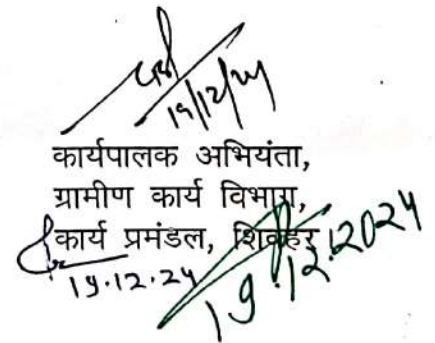 19/12/24
कार्यपालक अभियंता,
ग्रामीण कार्य विभाग,
कार्य प्रमंडल, शिवहर
19.12.24
19.12.2024